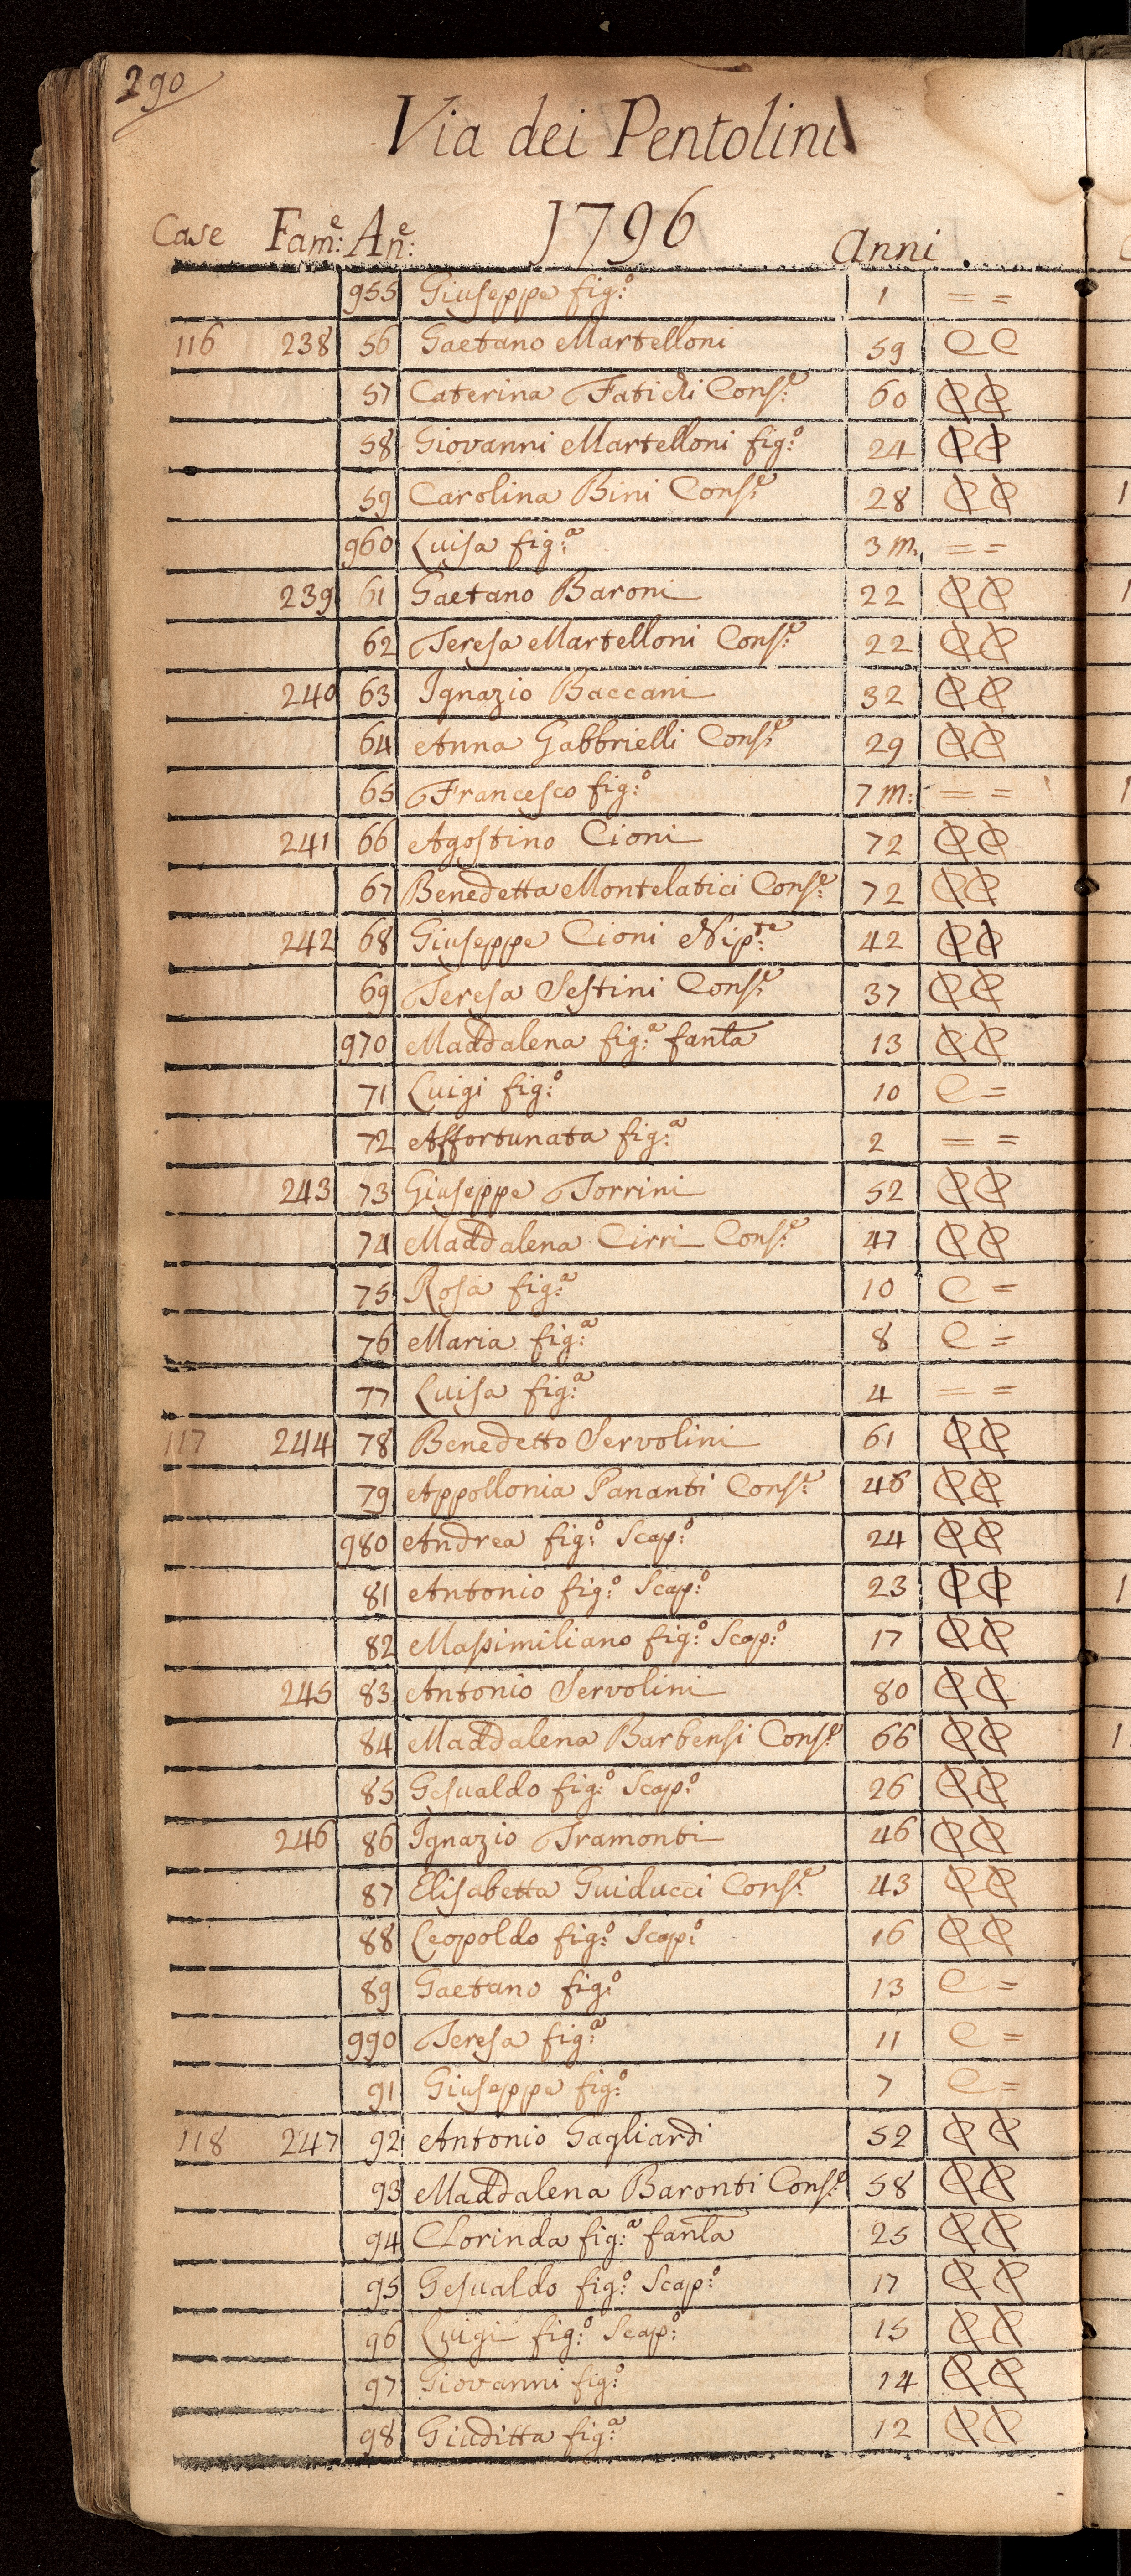 290
Via dei Pentolini
Case Fam:e An:e 1796 Anni
955 Giuseppe fig:o 1 = =
116 238 56 Gaetano Martelloni 59 C C
57 Caterina Faticli Cons:e 60 C C
58 Giovanni Martelloni fig:o 24 C C
59 Carolina Bini Cons:e 28 C C
960 Luisa fig:a 3 m. = =
239 61 Gaetano Baroni 22 C C
62 Teresa Martelloni Cons:e 22 C C
240 63 Ignazio Baccani 32 C C
64 Anna Gabbrielli Cons:e 29 C C
65 Francesco fig:o 7 m: = =
241 66 Agostino Cioni 72 C C
67 Benedetta Montelatici Cons:e 72 C C
242 68 Giuseppe Cioni Nip:te 42 C C
69 Teresa Sestini Cons:e 37 C C
970 Maddalena fig:a fanla 13 C C
71 Luigi fig:o 10 C =
72 Affortunata fig:a 2 = =
243 73 Giuseppe Torrini 52 C C
74 Maddalena Cirri Cons:e 47 C C
75 Rosa fig:a 10 C =
76 Maria fig:a 8 C =
77 Luisa fig:a 4 = =
117 244 78 Benedetto Servolini 61 C C
79 Appollonia Pananti Cons:e 46 C C
980 Andrea fig:o Scap:o 24 C C
81 Antonio fig:o Scap:o 23 C C
82 Massimiliano fig:o Scap:o 17 C C
245 83 Antonio Servolini 80 C C
84 Maddalena Barbensi Cons:e 66 C C
85 Gesualdo fig:o Scap:o 26 C C
246 86 Ignazio Tramonti 46 C C
87 Elisabetta Guiducci Cons:e 43 C C
88 Leopoldo fig:o Scap:o 16 C C
89 Gaetano fig:o 13 C =
990 Teresa fig:a 11 C =
91 Giuseppe fig:o 7 C =
118 247 92 Antonio Gagliardi 52 C C
93 Maddalena Baronti Cons:e 58 C C
94 Clorinda fig:a fanla 25 C C
95 Gesualdo fig:o Scap:o 17 C C
96 Luigi fig:o Scap:o 15 C C
97 Giovanni fig:o 14 C C
98 Giuditta fig:a 12 C C